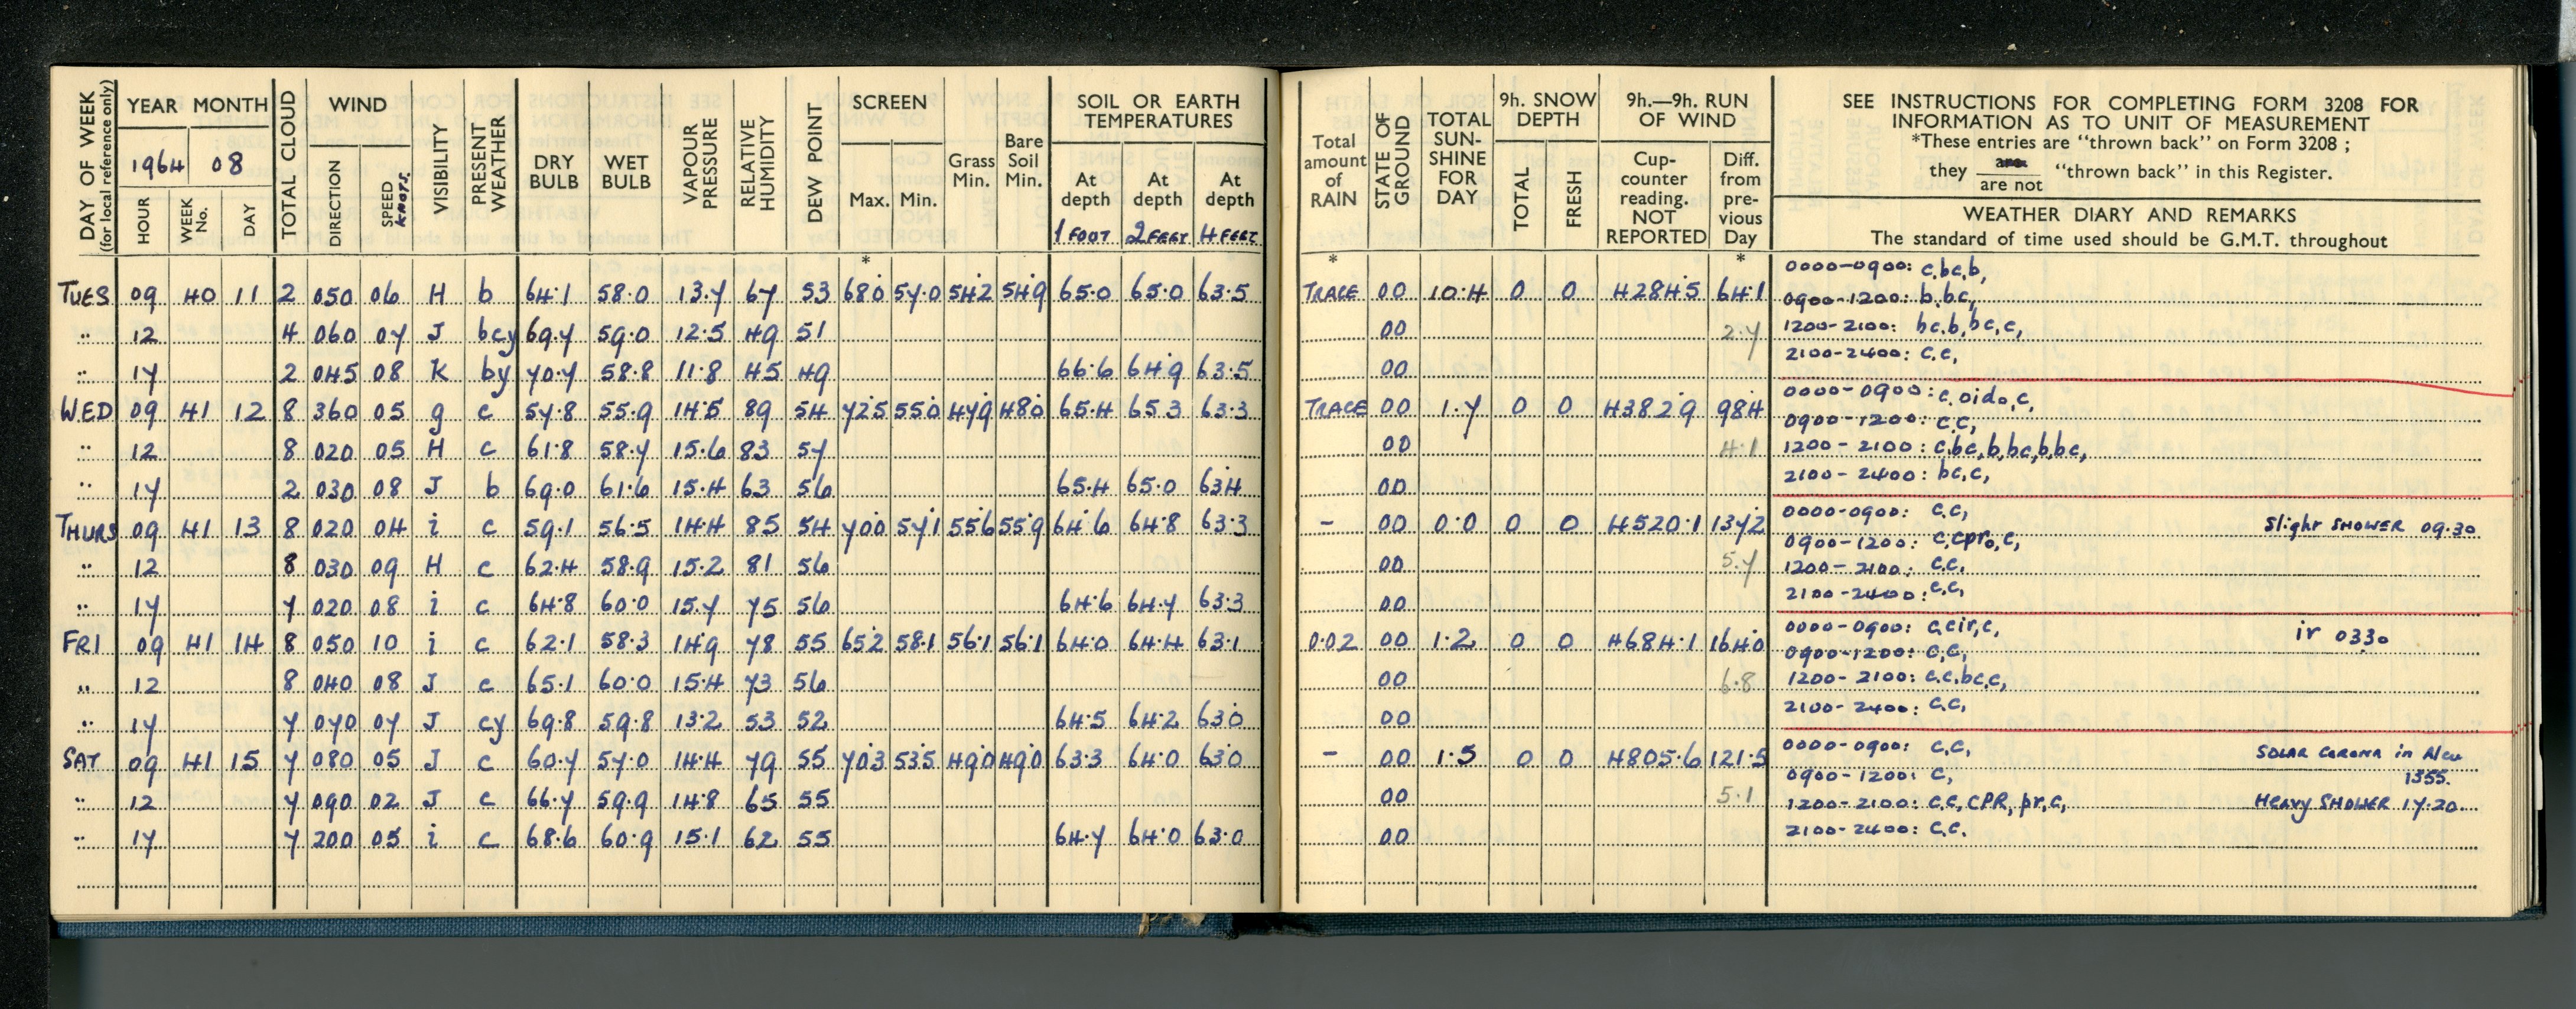 DAY OF WEEK
(for local reference only)
YEAR MONTH
1964 08
HOUR
WEEK No.
DAY
TOTAL CLOUD
WIND
DIRECTION
SPEED KNOTS.
VISIBILITY
PRESENT WEATHER
DRY BULB
WET BULB
VAPOUR PRESSURE
RELATIVE HUMIDITY
DEW POINT
SCREEN
Max. Min.
Grass Min.
Bare Soil Min.
SOIL OR EARTH TEMPERATURES
At depth 1 FOOT
At depth 2 FEET
At depth 4 FEET
Total amount of RAIN
STATE OF GROUND
TOTAL SUN-SHINE FOR DAY
9h. SNOW DEPTH
TOTAL
FRESH
9h.—9h. RUN OF WIND
Cup-counter reading. NOT REPORTED
Diff. from pre-vious Day
SEE INSTRUCTIONS FOR COMPLETING FORM 3208 FOR
INFORMATION AS TO UNIT OF MEASUREMENT
*These entries are "thrown back" on Form 3208 ;
they are / are not "thrown back" in this Register.
WEATHER DIARY AND REMARKS
The standard of time used should be G.M.T. throughout
* * *
TUES 09 40 11 2 050 06 H b 64.1 58.0 13.7 67 53 68.0 57.0 54.2 54.9 65.0 65.0 63.5 TRACE 00 10.4 0 0 4284.5 64.1
0000-0900: c,bc,b,
0900-1200: b,bc,
" 12 4 060 07 J bcy 69.7 59.0 12.5 49 51 00 2.7
1200-2100: bc,b,bc,c,
" 17 2 045 08 K by 70.7 58.8 11.8 45 49 66.6 64.9 63.5 00
2100-2400: c,c,
WED 09 41 12 8 360 05 g c 57.8 55.9 14.5 89 54 72.5 55.0 47.9 48.0 65.4 65.3 63.3 TRACE 00 1.7 0 0 4382.9 98.4
0000-0900: c,oido,c,
0900-1200: c,c,
" 12 8 020 05 H c 61.8 58.7 15.6 83 57 00 4.1
1200-2100: c,bc,b,bc,b,bc,
" 17 2 030 08 J b 69.0 61.6 15.4 63 56 65.4 65.0 63.4 00
2100-2400: bc,c,
THURS 09 41 13 8 020 04 i c 59.1 56.5 14.4 85 54 70.0 57.1 55.6 55.9 64.6 64.8 63.3 - 00 0.0 0 0 4520.1 137.2
0000-0900: c,c, Slight SHOWER 09.30
0900-1200: c,cpro,c,
" 12 8 030 09 H c 62.4 58.9 15.2 81 56 00 5.7
1200-2100: c,c,
" 17 7 020 08 i c 64.8 60.0 15.7 75 56 64.6 64.7 63.3 00
2100-2400: c,c,
FRI 09 41 14 8 050 10 i c 62.1 58.3 14.9 78 55 65.2 58.1 56.1 56.1 64.0 64.4 63.1 0.02 00 1.2 0 0 4684.1 164.0
0000-0900: c,cir,c, ir 0330
0900-1200: c,c,
" 12 8 040 08 J c 65.1 60.0 15.4 73 56 00 6.8
1200-2100: c,c,bc,c,
" 17 7 070 07 J cy 69.8 59.8 13.2 53 52 64.5 64.2 63.0 00
2100-2400: c,c,
SAT 09 41 15 7 080 05 J c 60.7 57.0 14.4 79 55 70.3 53.5 49.0 49.0 63.3 64.0 63.0 - 00 1.5 0 0 4805.6 121.5
0000-0900: c,c, SOLAR CORONA in Alcu
0900-1200: c, 1355.
" 12 7 090 02 J c 66.7 59.9 14.8 65 55 00 5.1
1200-2100: c,c,CPR,pr,c, HEAVY SHOWER 17.20
" 17 7 200 05 i c 68.6 60.9 15.1 62 55 64.7 64.0 63.0 00
2100-2400: c,c.